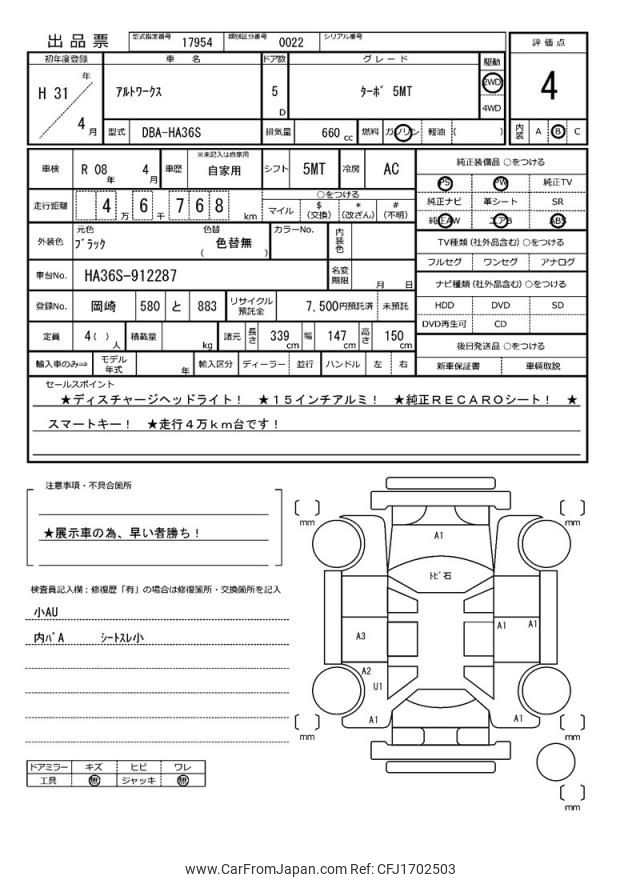 出品票
型式指定番号 17954 類別区分番号 0022 シリアル番号
評価点
4
内装 A B C
初年度登録 車名 ドア数 グレード 駆動
H 31 年 4 月
アルトワークス 5 D ターボ 5MT
2WD
4WD
型式 DBA-HA36S 排気量 660 cc 燃料 ガソリン 軽油 ( )
車検 R 08 年 4 月 車歴 ※未記入は自家用 自家用 シフト 5MT 冷房 AC
走行距離 4 万 6 千 7 6 8 km
○をつける
マイル $ (交換) * (改ざん) # (不明)
外装色 元色 ブラック 色替 ( 色替無 ) カラーNo. 内装色
車台No. HA36S-912287 名変期限 月 日
登録No. 岡崎 580 と 883 リサイクル預託金 7,500円預託済 未預託
定員 4( ) 人 積載量 kg 諸元 長さ 339 cm 幅 147 cm 高さ 150 cm
輸入車のみ⇒ モデル年式 年 輸入区分 ディーラー 並行 ハンドル 左 右
純正装備品 ○をつける
PS PW 純正TV
純正ナビ 革シート SR
純正AW エアB ABS
TV種類 (社外品含む) ○をつける
フルセグ ワンセグ アナログ
ナビ種類 (社外品含む) ○をつける
HDD DVD SD
DVD再生可 CD
後日発送品 ○をつける
新車保証書 車輌取説
セールスポイント
★ディスチャージヘッドライト! ★15インチアルミ! ★純正RECAROシート! ★
スマートキー! ★走行4万km台です!
注意事項・不具合箇所
★展示車の為、早い者勝ち!
検査員記入欄:修復歴「有」の場合は修復箇所・交換箇所を記入
小AU
内バA シートスレ小
ドアミラー キズ ヒビ ワレ
工具 無 ジャッキ 無
mm
mm
A1
トビ石
A3
A1
A1
A2
U1
A1
A1
mm
mm
mm
www.CarFromJapan.com Ref: CFJ1702503